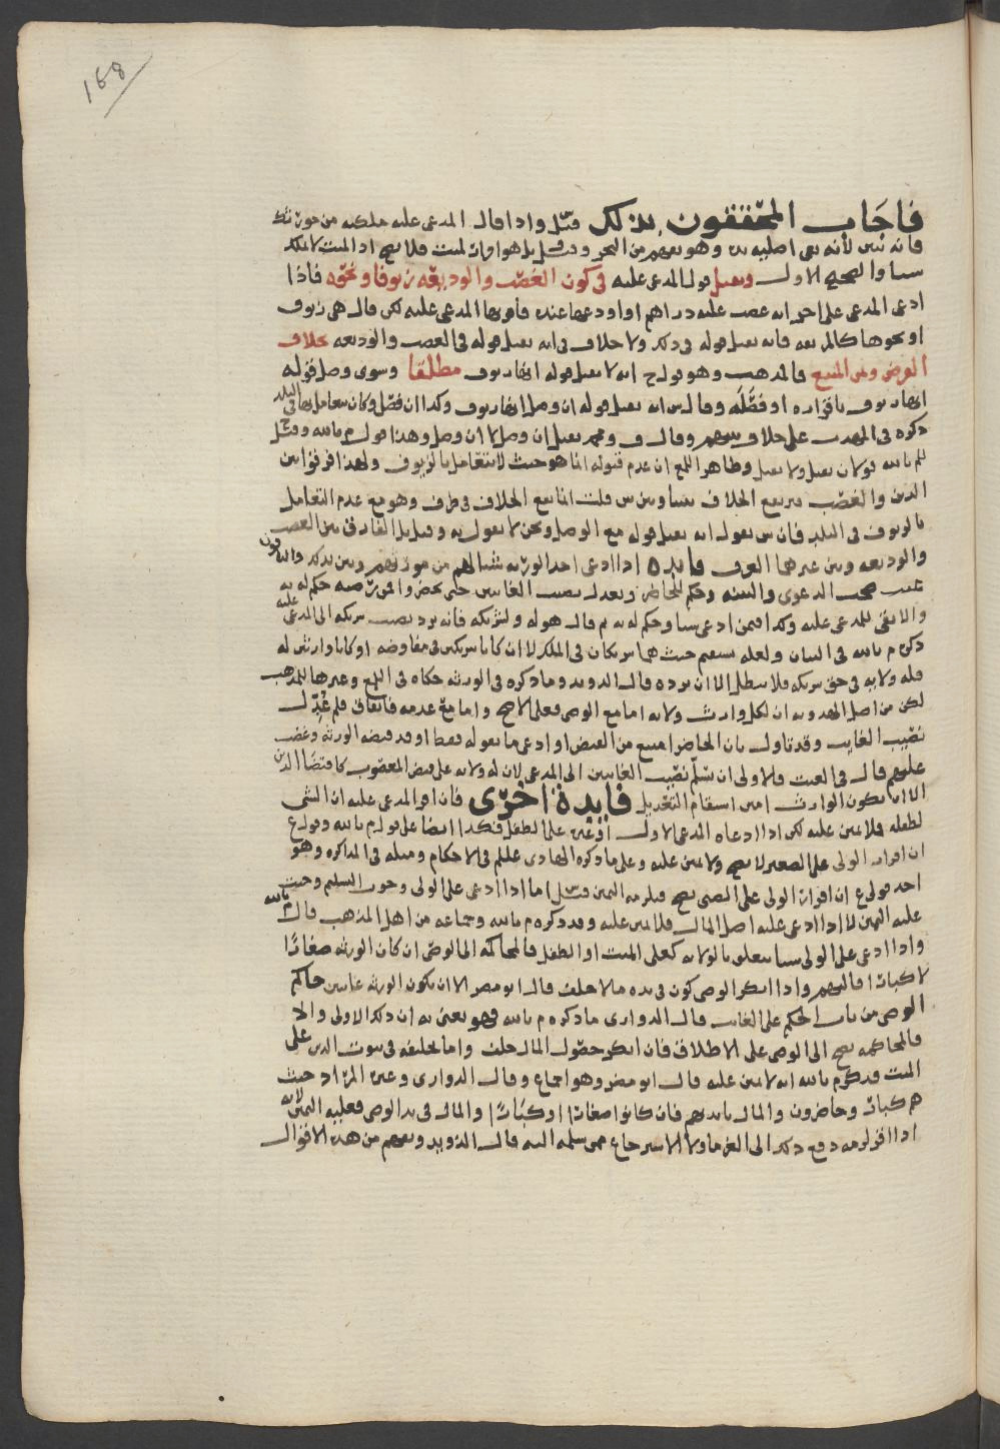 168
فاجاب المحققون بذلك قيل واذا قال المدعى عليه ملكته من مورثك
فانه يبين لأنه نفى اصليه يده وهو يفهم من البحر وقيل بل هو اقرار لميت فلا يصح اذ الميت لا يملك
شيا والصحيح الاول ويقبل قول المدعى عليه في كون الغصب والوديعه زيوفا ونحوه فاذا
ادعى المدعى على احد انه غصب عليه دراهم او اودعها عنده فاقر بها المدعى عليه لكن قال هي زيوف
او نحوها كالمزيفه فانه يقبل قوله في ذلك ولا خلاف في انه يقبل قوله في الغصب والوديعه بخلاف
القرض وثمن المبيع فالمذهب وهو قول ح انه لا يقبل قوله انها زيوف مطلقا وسوى وصل قوله
انها زيوف باقراره او فصله وقال س انه يقبل قوله ان وصل انها زيوف وكذا ان فصل وكان يتعامل بها في البلد
ذكره في المهذب على خلاف بينهم وقال ف ومحمد يقبل ان وصل لا ان فصل وهذا قول م بالله وقيل
للم بالله قولان يقبل ولا يقبل وظاهر اللمع ان عدم قبوله انما هو حيث لا يتعامل بالزيوف ولهذا فرقوا بين
الدين والغصب فيرتفع الخلاف بيننا وبين س قلت انما يقع الخلاف في طرف وهو مع عدم التعامل
بالزيوف في البلد فان س يقول انه يقبل قوله مع الوصل ونحن لا نقول به وقيل بل الفارق بين الغصب
والوديعه وبين غيرهما العرف فايده اذا ادعى احد الورثه شيا لهم من مورثهم وبين بذلك
تثبت صحت الدعوى والبينه وحكم للحاضر وبعدل نصيب الغايبين حتى يحضروا حكم له به
والا بقي للمدعى عليه وكذا فيمن ادعى شيا وحكم له به ثم قال هو له ولشريكه فانه يرد نصيب شريكه الى المدعى عليه
ذكره م بالله في البيان ولعله يستقيم حيث هما شريكان في الملك لا ان كانا شريكين في مفاوضه او كانا وارثين له
فله ولايه في حق شريكه فلا يبطل الا ان يرده قال الدويد وما ذكره في الورثه حكاه في اللمع وغيرها للمذهب
لكن من اصل الهدويه ان لكل وارث ولايه اما مع الوصي فعلى الاصح واما مع عدمه فاتفاق فلم عُدّل
نصيب الغايب وقد تاول بان الحاضر امتنع من القبض او ادعى ما يقوله فقط او قد قبضه الورثه وغصب
عليهم قال في الغيث فالاولى ان يسلم نصيب الغايبين الى المدعى لان له ولايه على قبض المغصوب كاقتضا الدين
الا ان يكون الوارث فايدة اخرى فان اقر المدعى عليه ان الشي
لطفله فلا يمين عليه لكن اذا ادعاه المدعى الاول على الطفل فكذا ايضا على قول م بالله وقول ع
ان اقرار الولي على الصغير لا يصح ولا يمين عليه وعلى ما ذكره الهادي عليلم في الاحكام ومثله في المذاكره وهو
احد قولي ع ان اقرار الولي على الصبي يصح فيلزمه اليمين قيل اما اذا ادعى على الولي وجوب التسليم وجبت
عليه اليمين لا اذا ادعى عليه اصل المال فلا يمين عليه وقد ذكره م بالله وجماعه من اهل المذهب قال م بالله
واذا ادعى على الولي شيا يتعلق بالولايه كعلى الميت او الطفل فالمحاكمه الى الوصي ان كان الورثه صغارًا
لا كبارًا فاليهم واذا انكر الوصي كون في يده مالا حلف قال ابو مضر الا ان يكون الورثه غايبين حاكم
الوصي من باب الحكم على الغايب قال الدواري ما ذكره م بالله فهو يعني به ان ذلك الاولى والا
فالمحاكمه تصح الى الوصي على الاطلاق فان انكر حصول المال حلف واما تحليفه في ثبوت الدين على
الميت فذكر م بالله انه لا يمين عليه قال ابو مضر وهو اجماع وقال الدواري وغيره المراد حيث
هم كبار وحاضرون والمال بايديهم فان كانوا صغارًا او كبارًا والمال في يد الوصي فعليه اليمين لانه
اذا اقر لزمه دفع ذلك الى الغرما ولا الاسترجاع ممن سلمه اليه قال الدويد ويفهم من هذه الاقوال